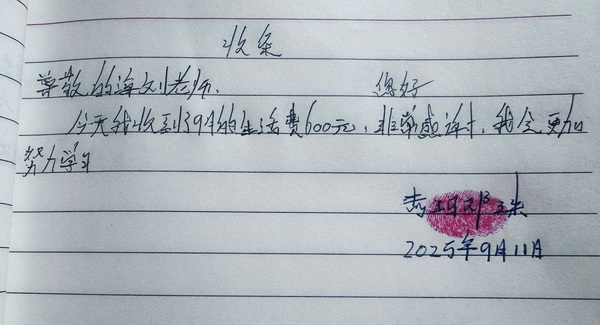 收条
尊敬的海刘老师. 您好
今天我收到了9月的生活费600元,非常感谢!,我会更加
努力学习
2025年9月11日